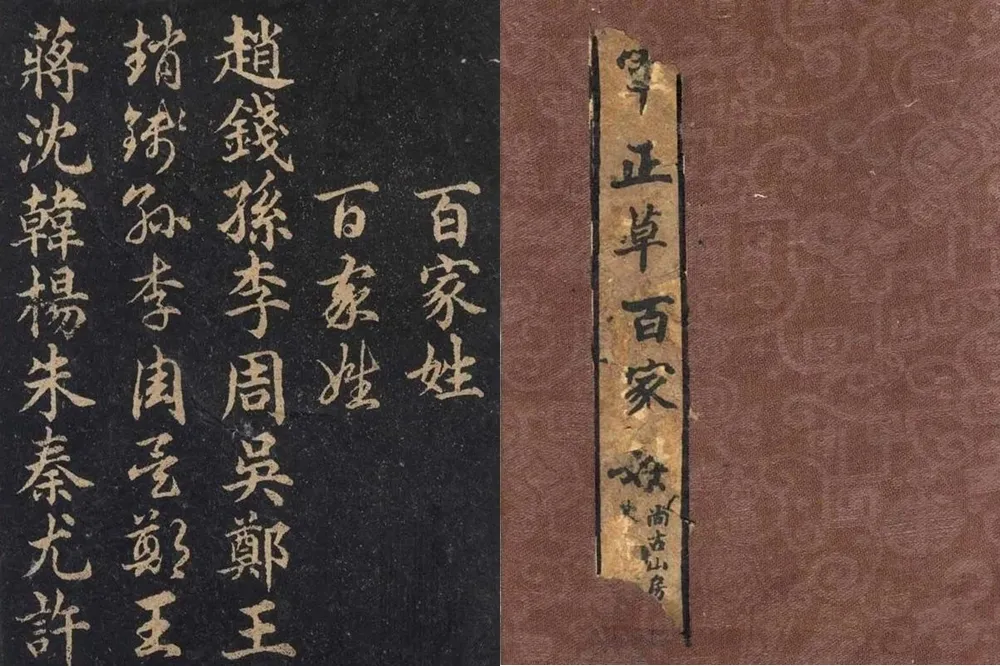 正草百家姓
尚古山房
百家姓
百家姓
趙錢孫李周吳鄭王
趙錢孫李周吳鄭王
蔣沈韓楊朱秦尤許